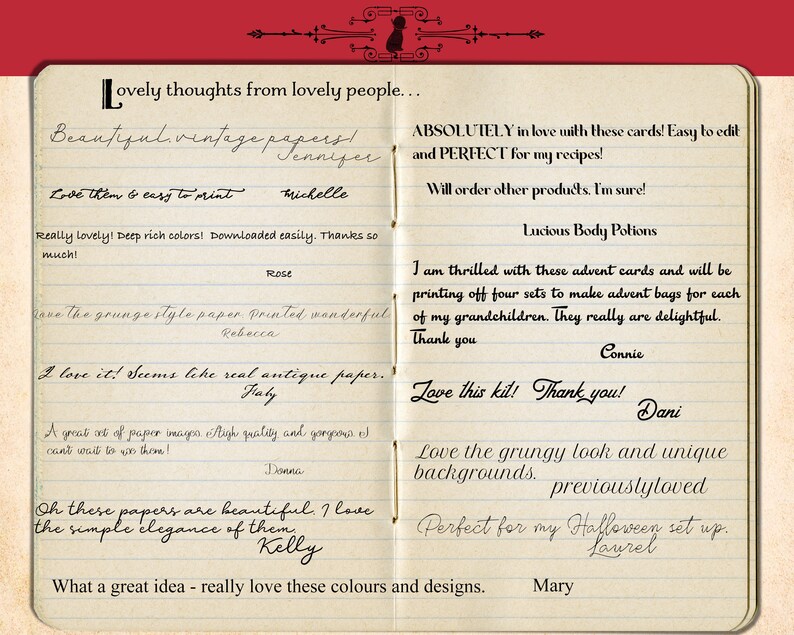 Lovely thoughts from lovely people. . .
Beautiful, vintage papers!
Jennifer
Love them & easy to print Michelle
Really lovely! Deep rich colors! Downloaded easily. Thanks so
much!
Rose
Love the grunge style paper. Printed wonderful
Rebecca
I love it! Seems like real antique paper.
Faby
A great set of paper images. High quality and gorgeous. I
can't wait to use them!
Donna
Oh these papers are beautiful. I love
the simple elegance of them.
Kelly
ABSOLUTELY in love with these cards! Easy to edit
and PERFECT for my recipes!
Will order other products, I'm sure!
Lucious Body Potions
I am thrilled with these advent cards and will be
printing off four sets to make advent bags for each
of my grandchildren. They really are delightful.
Thank you
Connie
Love this kit! Thank you!
Dani
Love the grungy look and unique
backgrounds.
previouslyloved
Perfect for my Halloween set up.
Laurel
What a great idea - really love these colours and designs. Mary